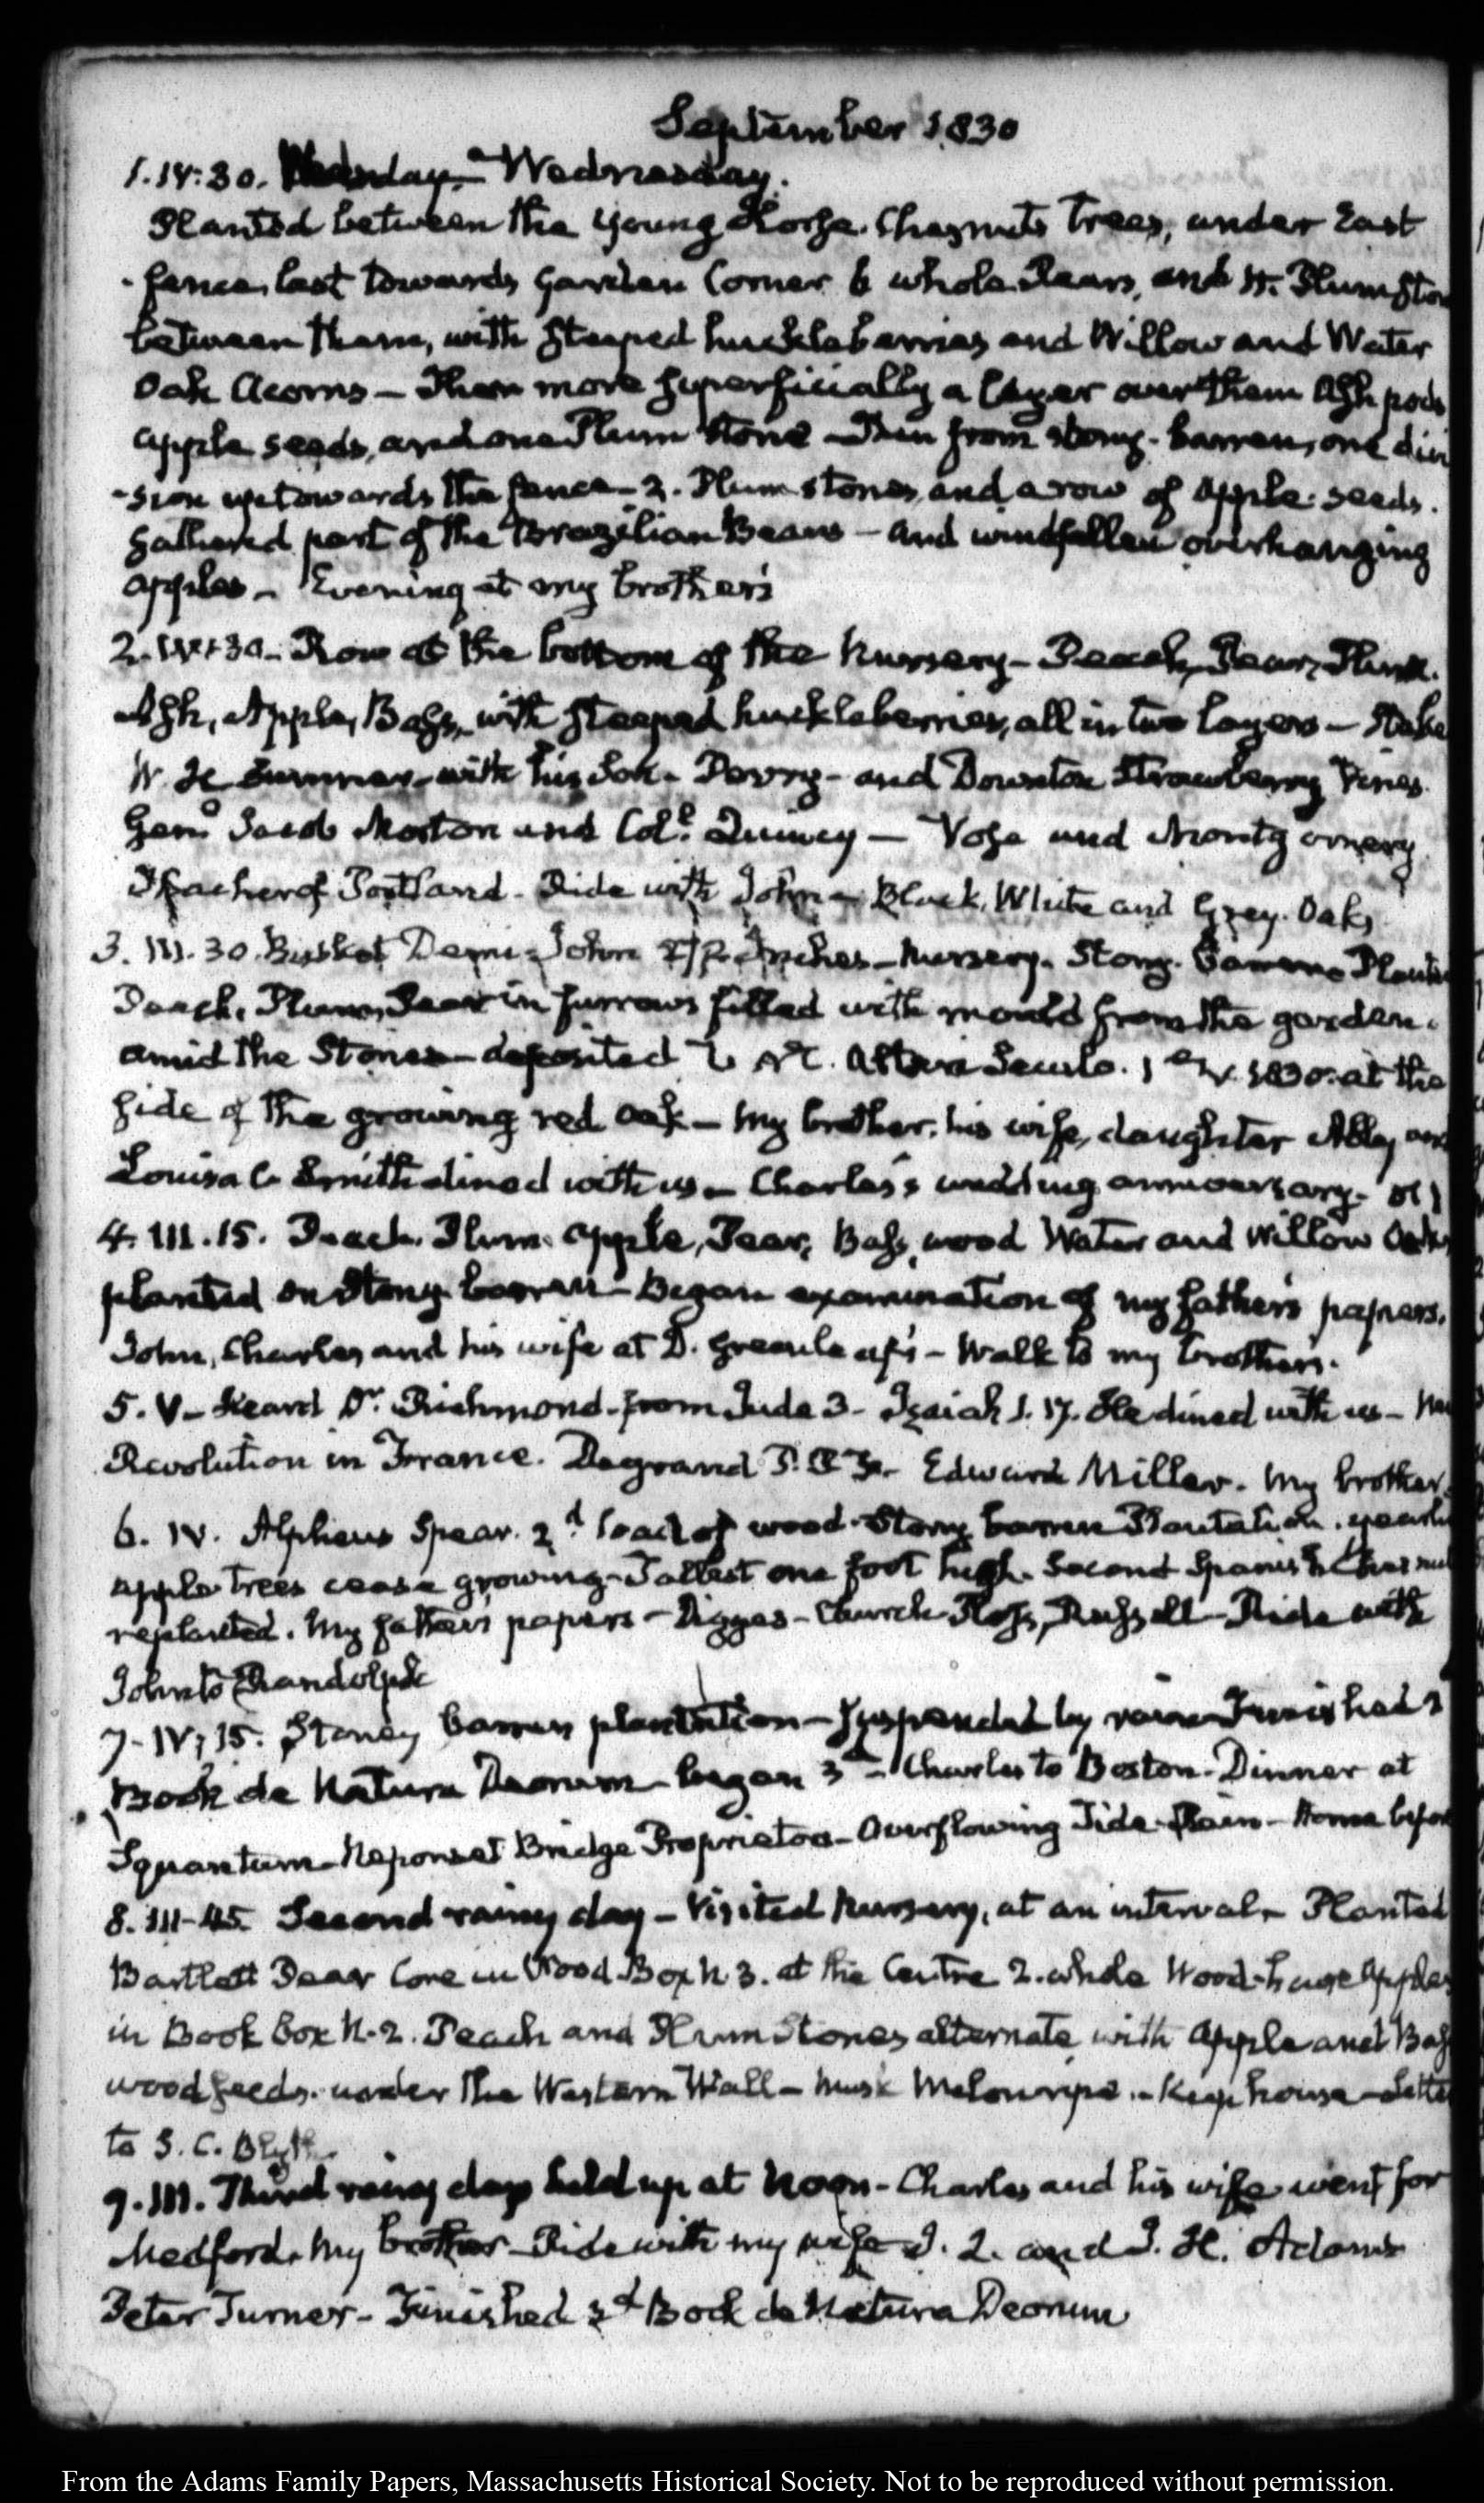 September 1830
1. IV:30. Wednesday.
Planted between the young Horse Chesnuts trees, under East
fence, last towards garden Corner 6 whole Pears, and
between them, with steeped huckleberries and Willow and Water
Oak Acorns – Then more superficially a layer over them Ash pods
apple seeds, and one Plum stone – Then from stony-barren, one divi
-sion up towards the fence – 2. Plum stones, and a row of apple seeds.
Gathered part of the Brazilian Beans – and windfallen overhanging
apples – Evening at my brother's
2. Row at the bottom of the Nursery – Peach, Pear, Plum.
Ash, Apple, Bass, with steeped huckleberries, all in two layers –
W. H. Sumner – with his Son – and Downton Strawberry Vines.
Genl. Morton and Coll. Quincy – Vose and Montgomery
Thacher of Portland. Ride with John – Black, White and Grey Oaks
3. III.30. Demi-John Inches – Nursery. Stony. Barren
Peach, Plum, Pear in furrows filled with mould from the garden.
amid the Stones – deposited Alteri Seculo. 1830. at the
side of the growing red oak – My brother, his wife, daughter Abby, and
Louisa C. Smith dined with us – Charles's wedding anniversary.
4. III.15. Peach. Plum. apple, Pear, Bass wood Water and Willow Oaks
planted on Stony barren – Began examination of my father's papers.
John, Charles and his wife at D. Greenleaf's – Walk to my brother's.
5. V – Heard Mr. Richmond – from Jude 3 – Isaiah 1.17. He dined with us –
Revolution in France. Degrand P. P. F. – Edward Miller. My brother.
6. IV. Alpheus Spear. 2d. load of wood. Stony barren Plantation.
apple trees cease growing – Tallest one foot high. Second Spanish
replanted. My father's papers – Digges – Church, Ross, Russell – Ride with
John to Randolph
7. IV:15. Stoney barren plantation – suspended by rain – Finished 2
Book de Natura Deorum – began 3d – Charles to Boston – Dinner at
Squantum – Neponset Bridge Proprietors – Overflowing Tide – Rain – Home
8. III–45. Second rainy day – Visited Nursery, at an interval – Planted
Bartlett Pear Core in Wood Box N. 3. at the Centre 2. whole Wood-house Apples
in Book box N. 2. Peach and Plum Stones alternate with apple and Bass
wood seeds. under the Western Wall – Musk Melon ripe – Kept house – Letter
to S. C. Blyth.
9. III. Third rainy day held up at Noon – Charles and his wife went for
Medford. My brother – Ride with my wife I. H. Adams
Peter Turner – Finished 3d Book de Natura Deorum
From the Adams Family Papers, Massachusetts Historical Society. Not to be reproduced without permission.